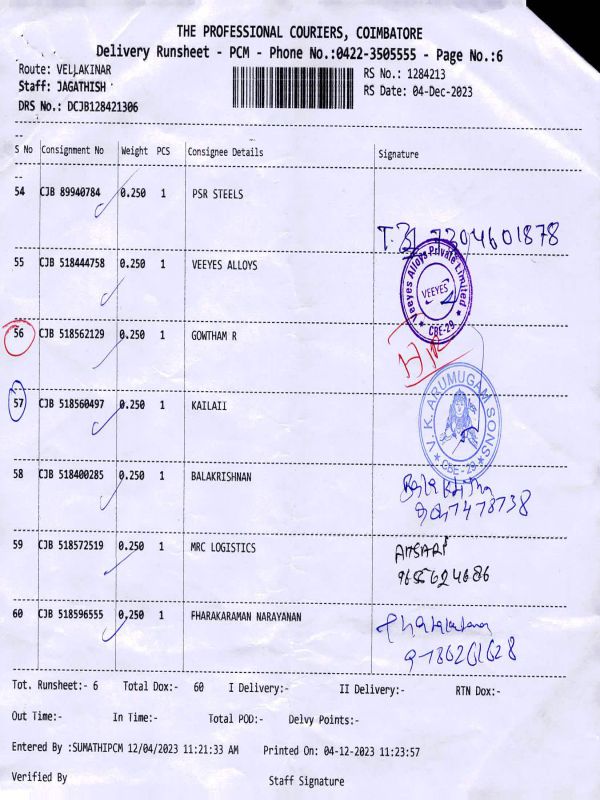 THE PROFESSIONAL COURIERS, COIMBATORE
Delivery Runsheet - PCM - Phone No.:0422-3505555 - Page No.:6
Route: VELLAKINAR RS No.: 1284213
Staff: JAGATHISH RS Date: 04-Dec-2023
DRS No.: DCJB128421306
S No Consignment No Weight PCS Consignee Details Signature
54 CJB 89940784 0.250 1 PSR STEELS
7304601878
55 CJB 518444758 0.250 1 VEEYES ALLOYS
Veeyes Alloys Private Limited
VEEYES
CBE-29
56 CJB 518562129 0.250 1 GOWTHAM R
57 CJB 518560497 0.250 1 KAILAII
V. K. ARUMUGAM SONS
CBE-29
58 CJB 518400285 0.250 1 BALAKRISHNAN
59 CJB 518572519 0.250 1 MRC LOGISTICS
ANSARI
60 CJB 518596555 0,250 1 FHARAKARAMAN NARAYANAN
Tot. Runsheet:- 6 Total Dox:- 60 I Delivery:- II Delivery:- RTN Dox:-
Out Time:- In Time:- Total POD:- Delvy Points:-
Entered By :SUMATHIPCM 12/04/2023 11:21:33 AM Printed On: 04-12-2023 11:23:57
Verified By Staff Signature